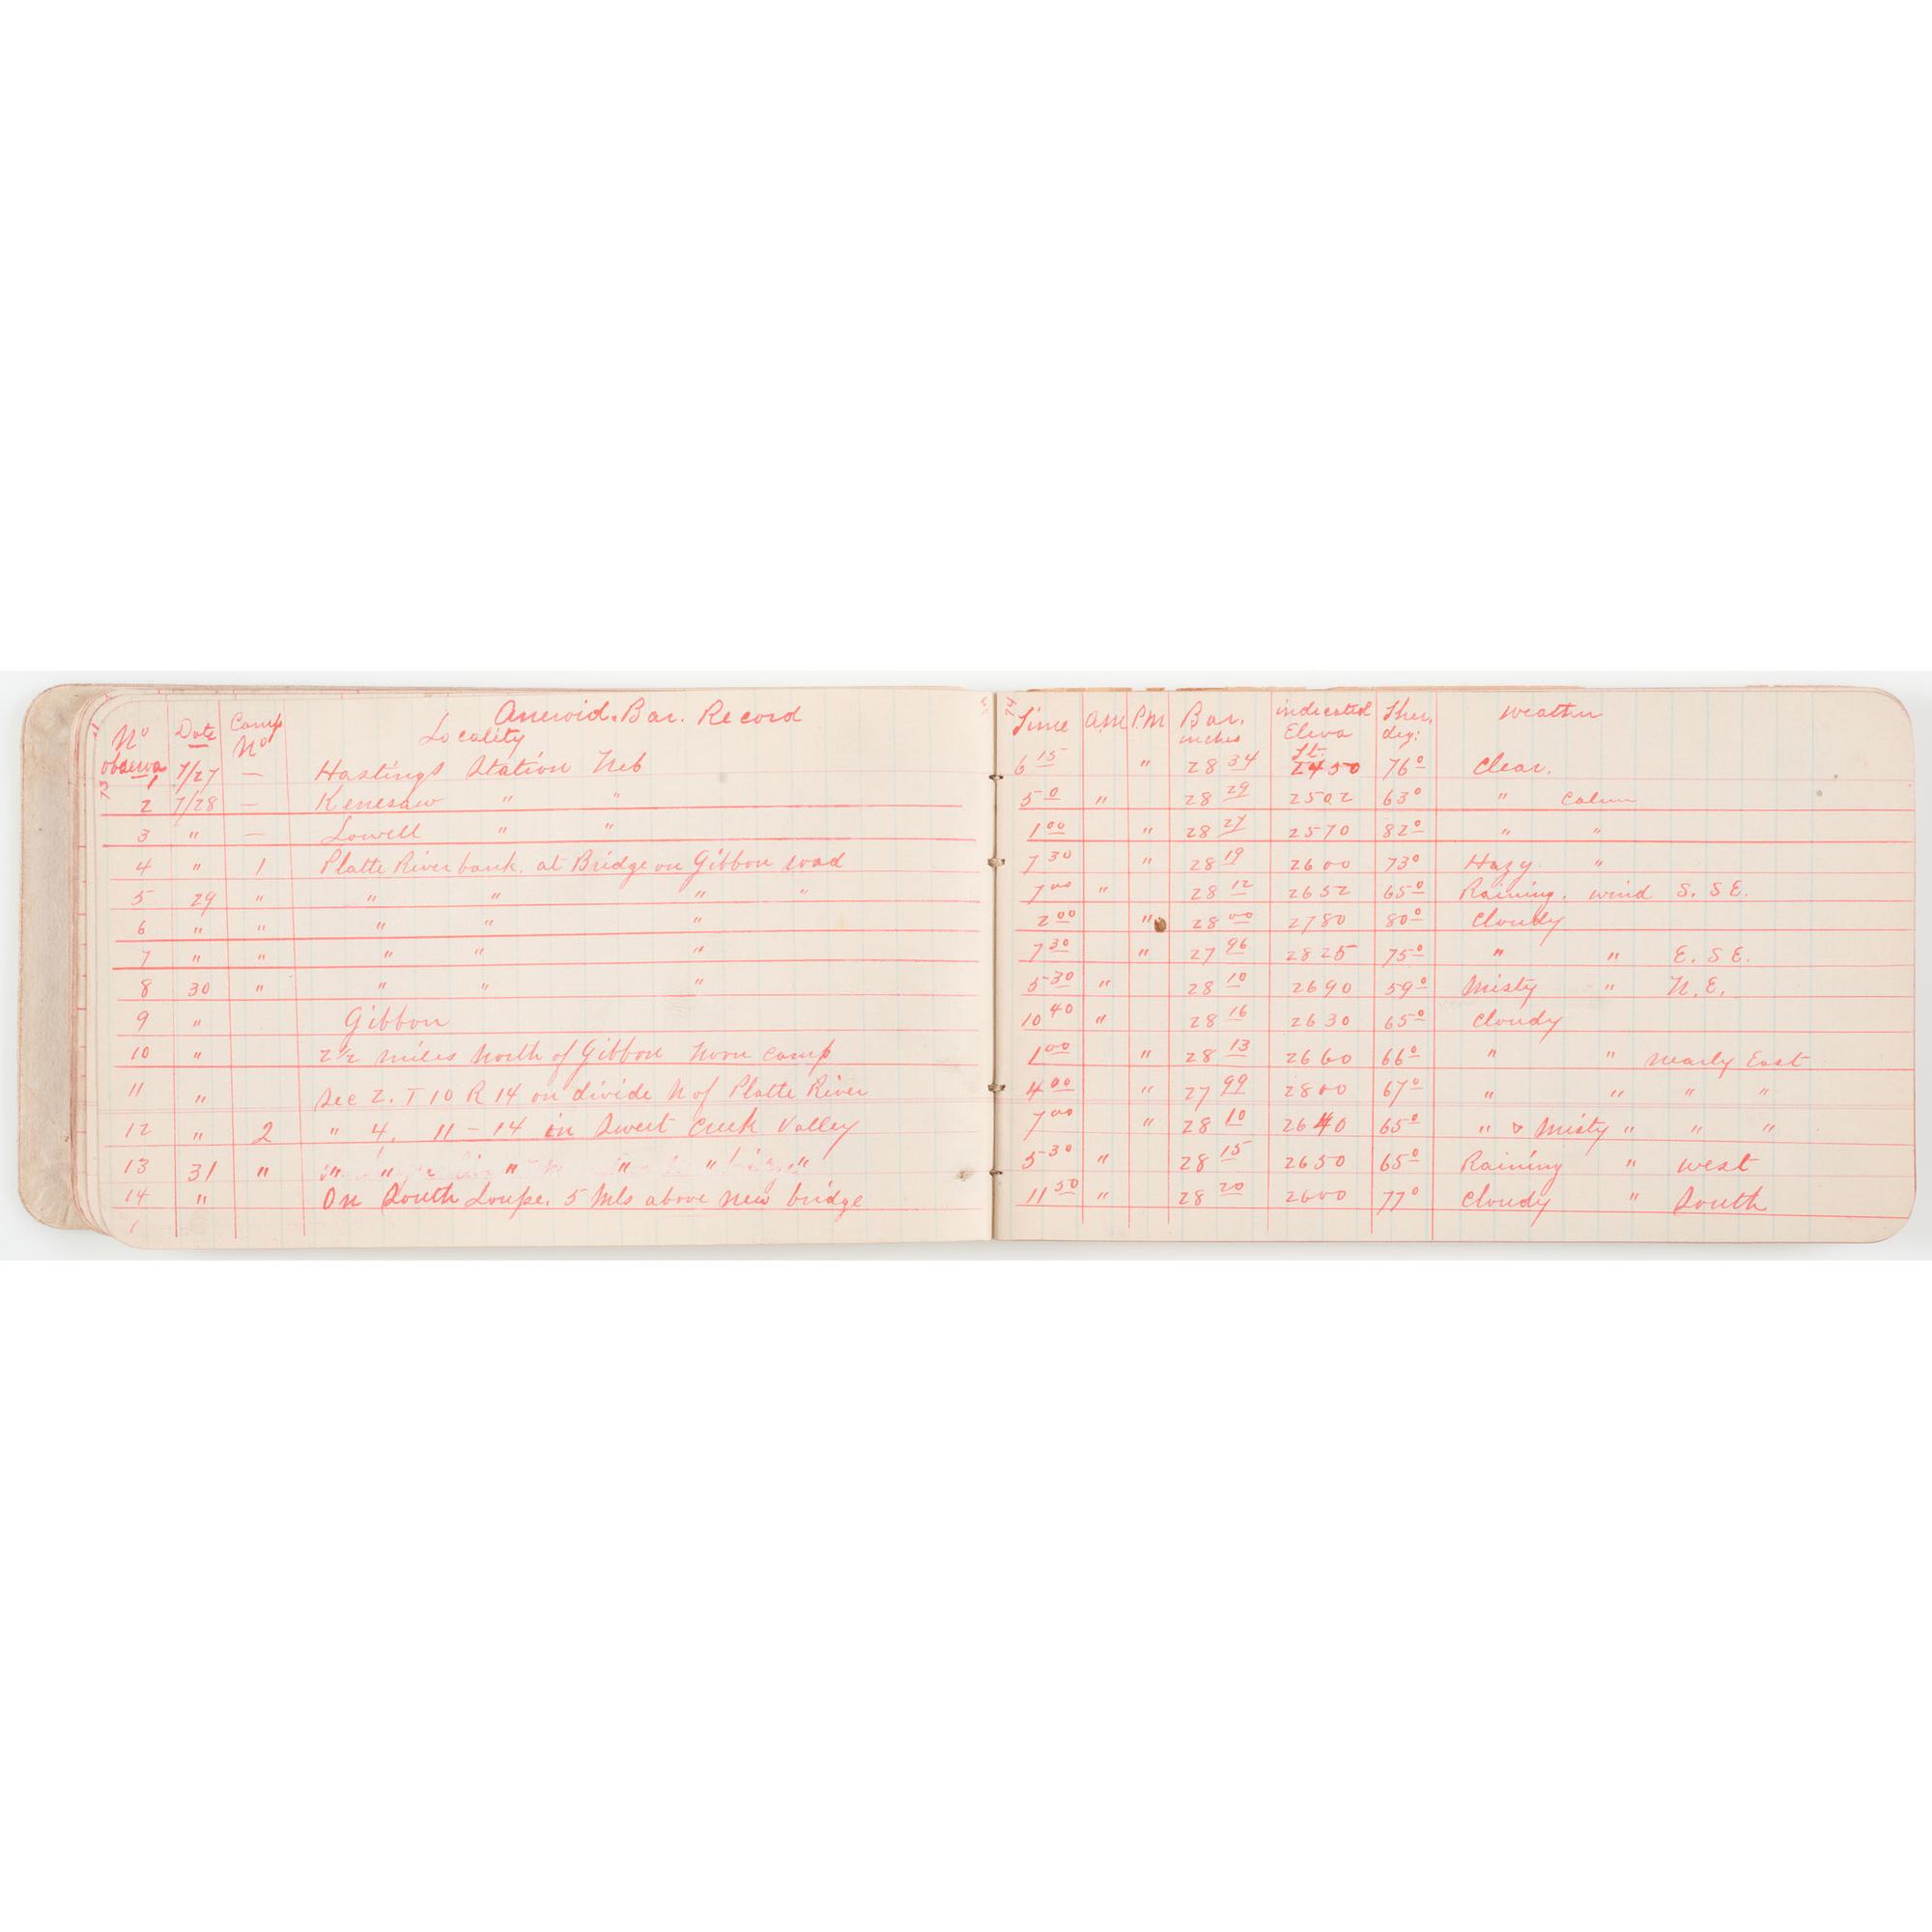 Aneroid. Bar. Record
No observa. Date Camp No Locality Time A.M P.M Bar. inches indicated Eleva ft. Ther. deg: Weather
1 7/27 — Hastings Station Neb 6 15 " 28 34 2450 76° Clear.
2 7/28 — Kenesaw " " 5 0 " 28 29 2502 63° " Calm
3 " — Lowell " " 1 00 " 28 27 2570 82° " "
4 " 1 Platte River bank. at Bridge on Gibbon road 7 30 " 28 19 2600 73° Hazy "
5 29 " " " " " 7 00 " 28 12 2652 65° Raining. wind S. S E.
6 " " " " " 2 00 " 28 00 2780 80° Cloudy
7 " " " " " 7 30 " 27 96 2825 75° " " E. S E.
8 30 " " " " 5-30 " 28 10 2690 59° Misty " N. E.
9 " Gibbon 10 40 " 28 16 2630 65° Cloudy
10 " 2 1/2 miles North of Gibbon Noon Camp 1 00 " 28 13 2660 66° " " Nearly East
11 " Sec 2. T 10 R 14 on divide N of Platte River 4 00 " 27 99 2800 67° " " " "
12 " 2 " 4. 11 - 14 in Sweet Creek Valley 7 00 " 28 10 2640 65° " & Misty " " "
13 31 " " " " " " 5-30 " 28 15 2650 65° Raining " West
14 " On South Loupe. 5 Mls above new bridge 11 50 " 28 20 2600 77° Cloudy " South
73
74